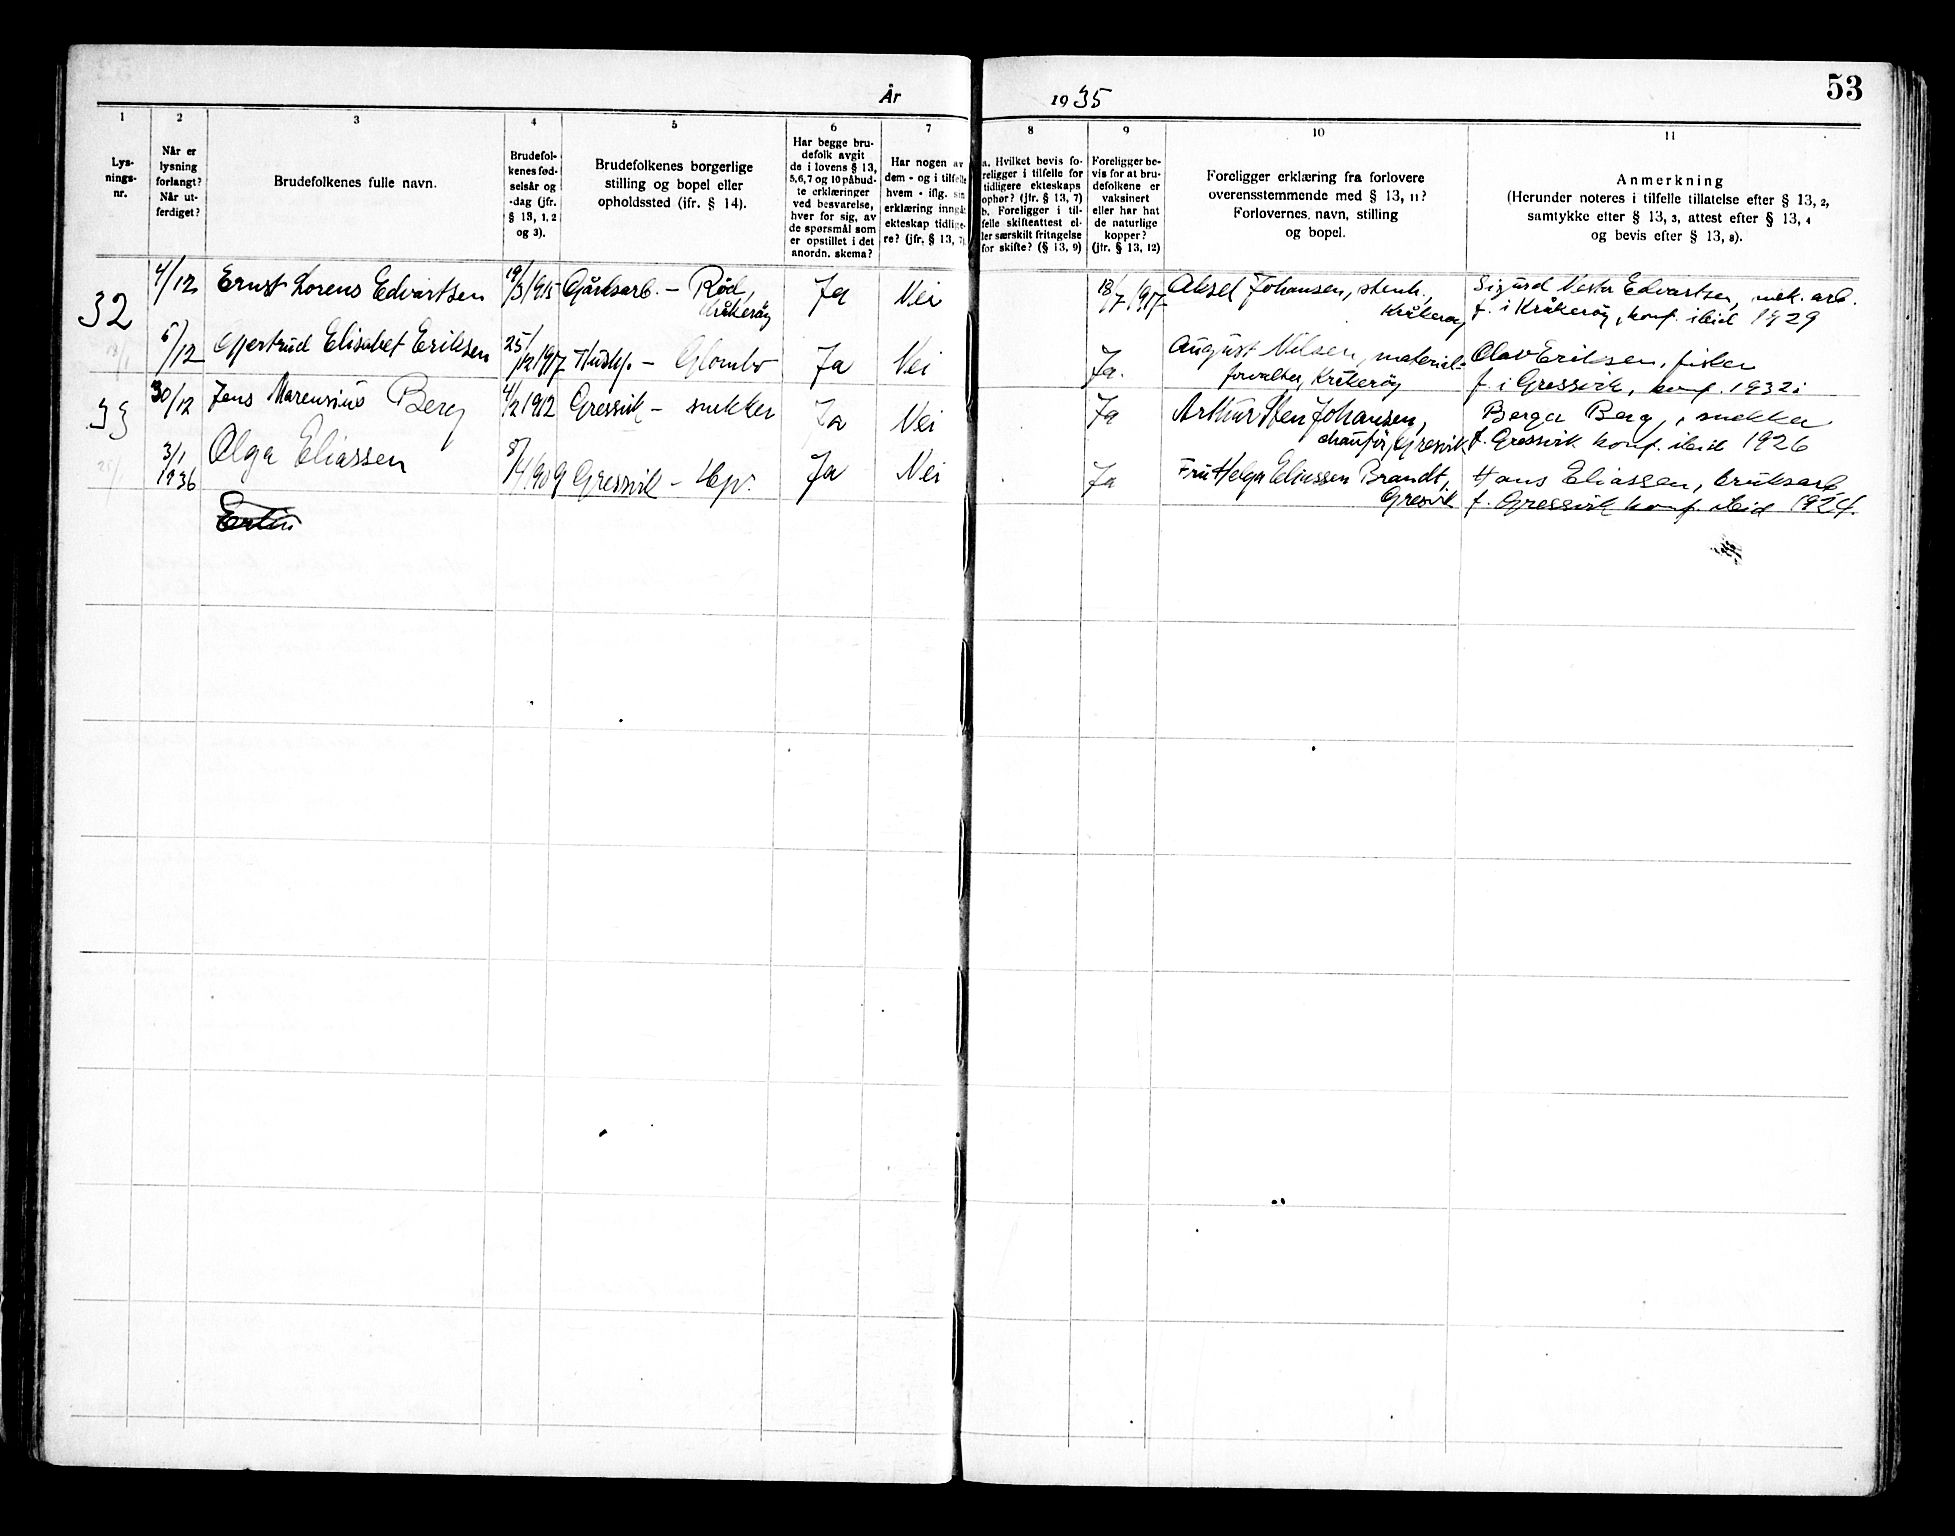 53
År 1935
1 2 3 4 5 6 7 8 9 10 11
Lys-
nings-
nr.
Når er
lysning
forlangt?
Når ut-
ferdiget?
Brudefolkenes fulle navn.
Brudefol-
kenes fød-
selsår og
-dag (jfr.
§ 13, 1, 2
og 3).
Brudefolkenes borgerlige
stilling og bopel eller
opholdssted (ifr. § 14).
Har begge bru-
defolk avgit
de i lovens § 13,
5,6,7 og 10 påbud-
te erklæringer
ved besvarelse,
hver for sig, av
de spørsmål som
er opstillet i det
anordn. skema?
Har nogen av
dem - og i tilfelle
hvem - iflg. sin
erklæring inngå
ekteskap tidlige-
re? (jfr. § 13, 7).
a. Hvilket bevis fo-
religger i tilfelle for
tidligere ekteskaps
ophør? (jfr. § 13, 7)
b. Foreligger i til-
felle skifteattest el-
ler særskilt fritagelse
for skifte? (§ 13, 9)
Foreligger be-
vis for at bru-
defolkene er
vaksinert
eller har hat
de naturlige
kopper?
(jfr. § 13, 12)
Foreligger erklæring fra forlovere
overensstemmende med § 13, 11?
Forlovernes navn, stilling
og bopel.
Anmerkning
(Herunder noteres i tilfelle tillatelse efter § 13, 2,
samtykke efter § 13, 3, attest efter § 13, 4
og bevis efter § 13, 8).
32 4/12 Ernst Lorens Edvartsen 19/3 1915 Gårdsarb. - Rød, Kråkerøy Ja Nei 18/7 1917 Aksel Johansen, stenh., Kråkerøy Sigurd Edvartsen, mek. arb.
f. i Kråkerøy, konf. ibid 1929
6/12 Gjertrud Elisabet Eriksen 25/12 1917 Hushj. - Glombo Ja Nei Ja. August Nilsen, material-
forvalter, Kråkerøy Olav Eriksen, fisker
f. i Gressvik, konf. 1932 i
33 30/12 Jens Marensius Berg 4/2 1912 Gressvik - snekker Ja Nei Ja Arthur Sten Johansen,
chaufør, Gresvik Berger Berg, snekker
f. Gressvik konf. ibid 1926
3/1 1936 Olga Eliassen 1909 Gressvik - Hsv. Ja Nei Ja Fru Helga Eliassen Brandt,
Gresvik Hans Eliassen, bruksarb.
f. Gressvik konf. ibid 1924.